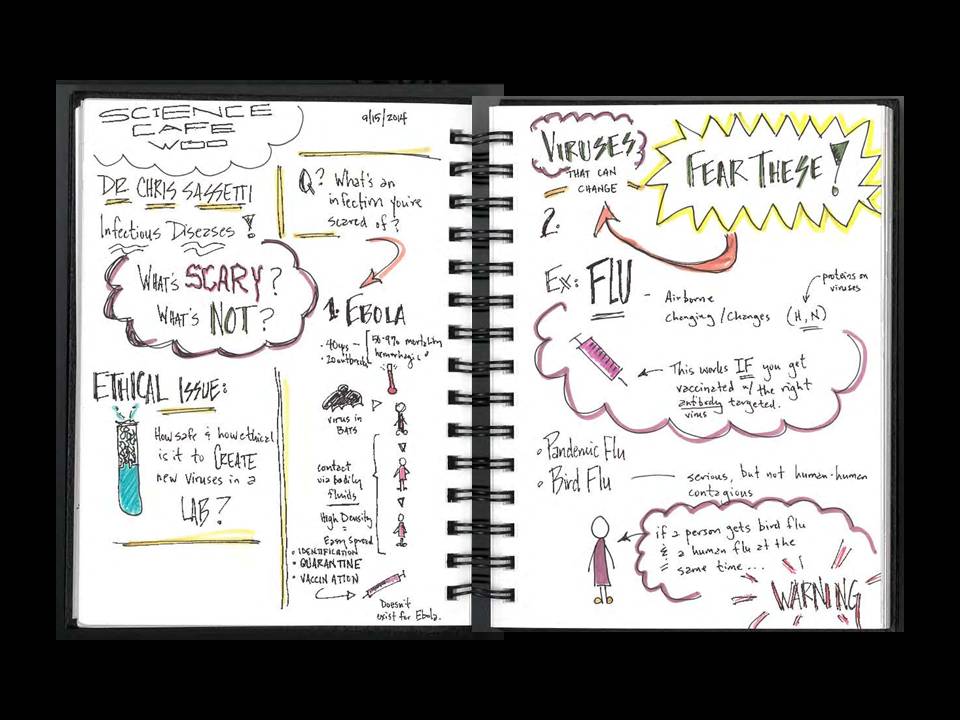 SCIENCE
CAFE
WOO
9/15/2014
DR. CHRIS SASSETTI
Infectious Diseases!
What's SCARY?
What's NOT?
ETHICAL ISSUE:
How safe & how ethical
is it to CREATE
new viruses in a
LAB?
Q? What's an
infection you're
scared of?
1. EBOLA
• 40 yrs –
• 20 outbreaks
50-90% mortality
hemorrhagic
virus in
BATS
contact
via bodily
fluids
High Density
=
Easy spread
• IDENTIFICATION
• QUARANTINE
• VACCINATION
Doesn't
exist for Ebola.
VIRUSES
THAT CAN
CHANGE
FEAR THESE!
2.
Ex: FLU – Airborne
changing/changes (H,N)
proteins on
viruses
This works IF you get
vaccinated w/ the right
antibody targeted.
virus
• Pandemic Flu
• Bird Flu — serious, but not human-human
contagious
if a person gets bird flu
& a human flu at the
same time...
= WARNING